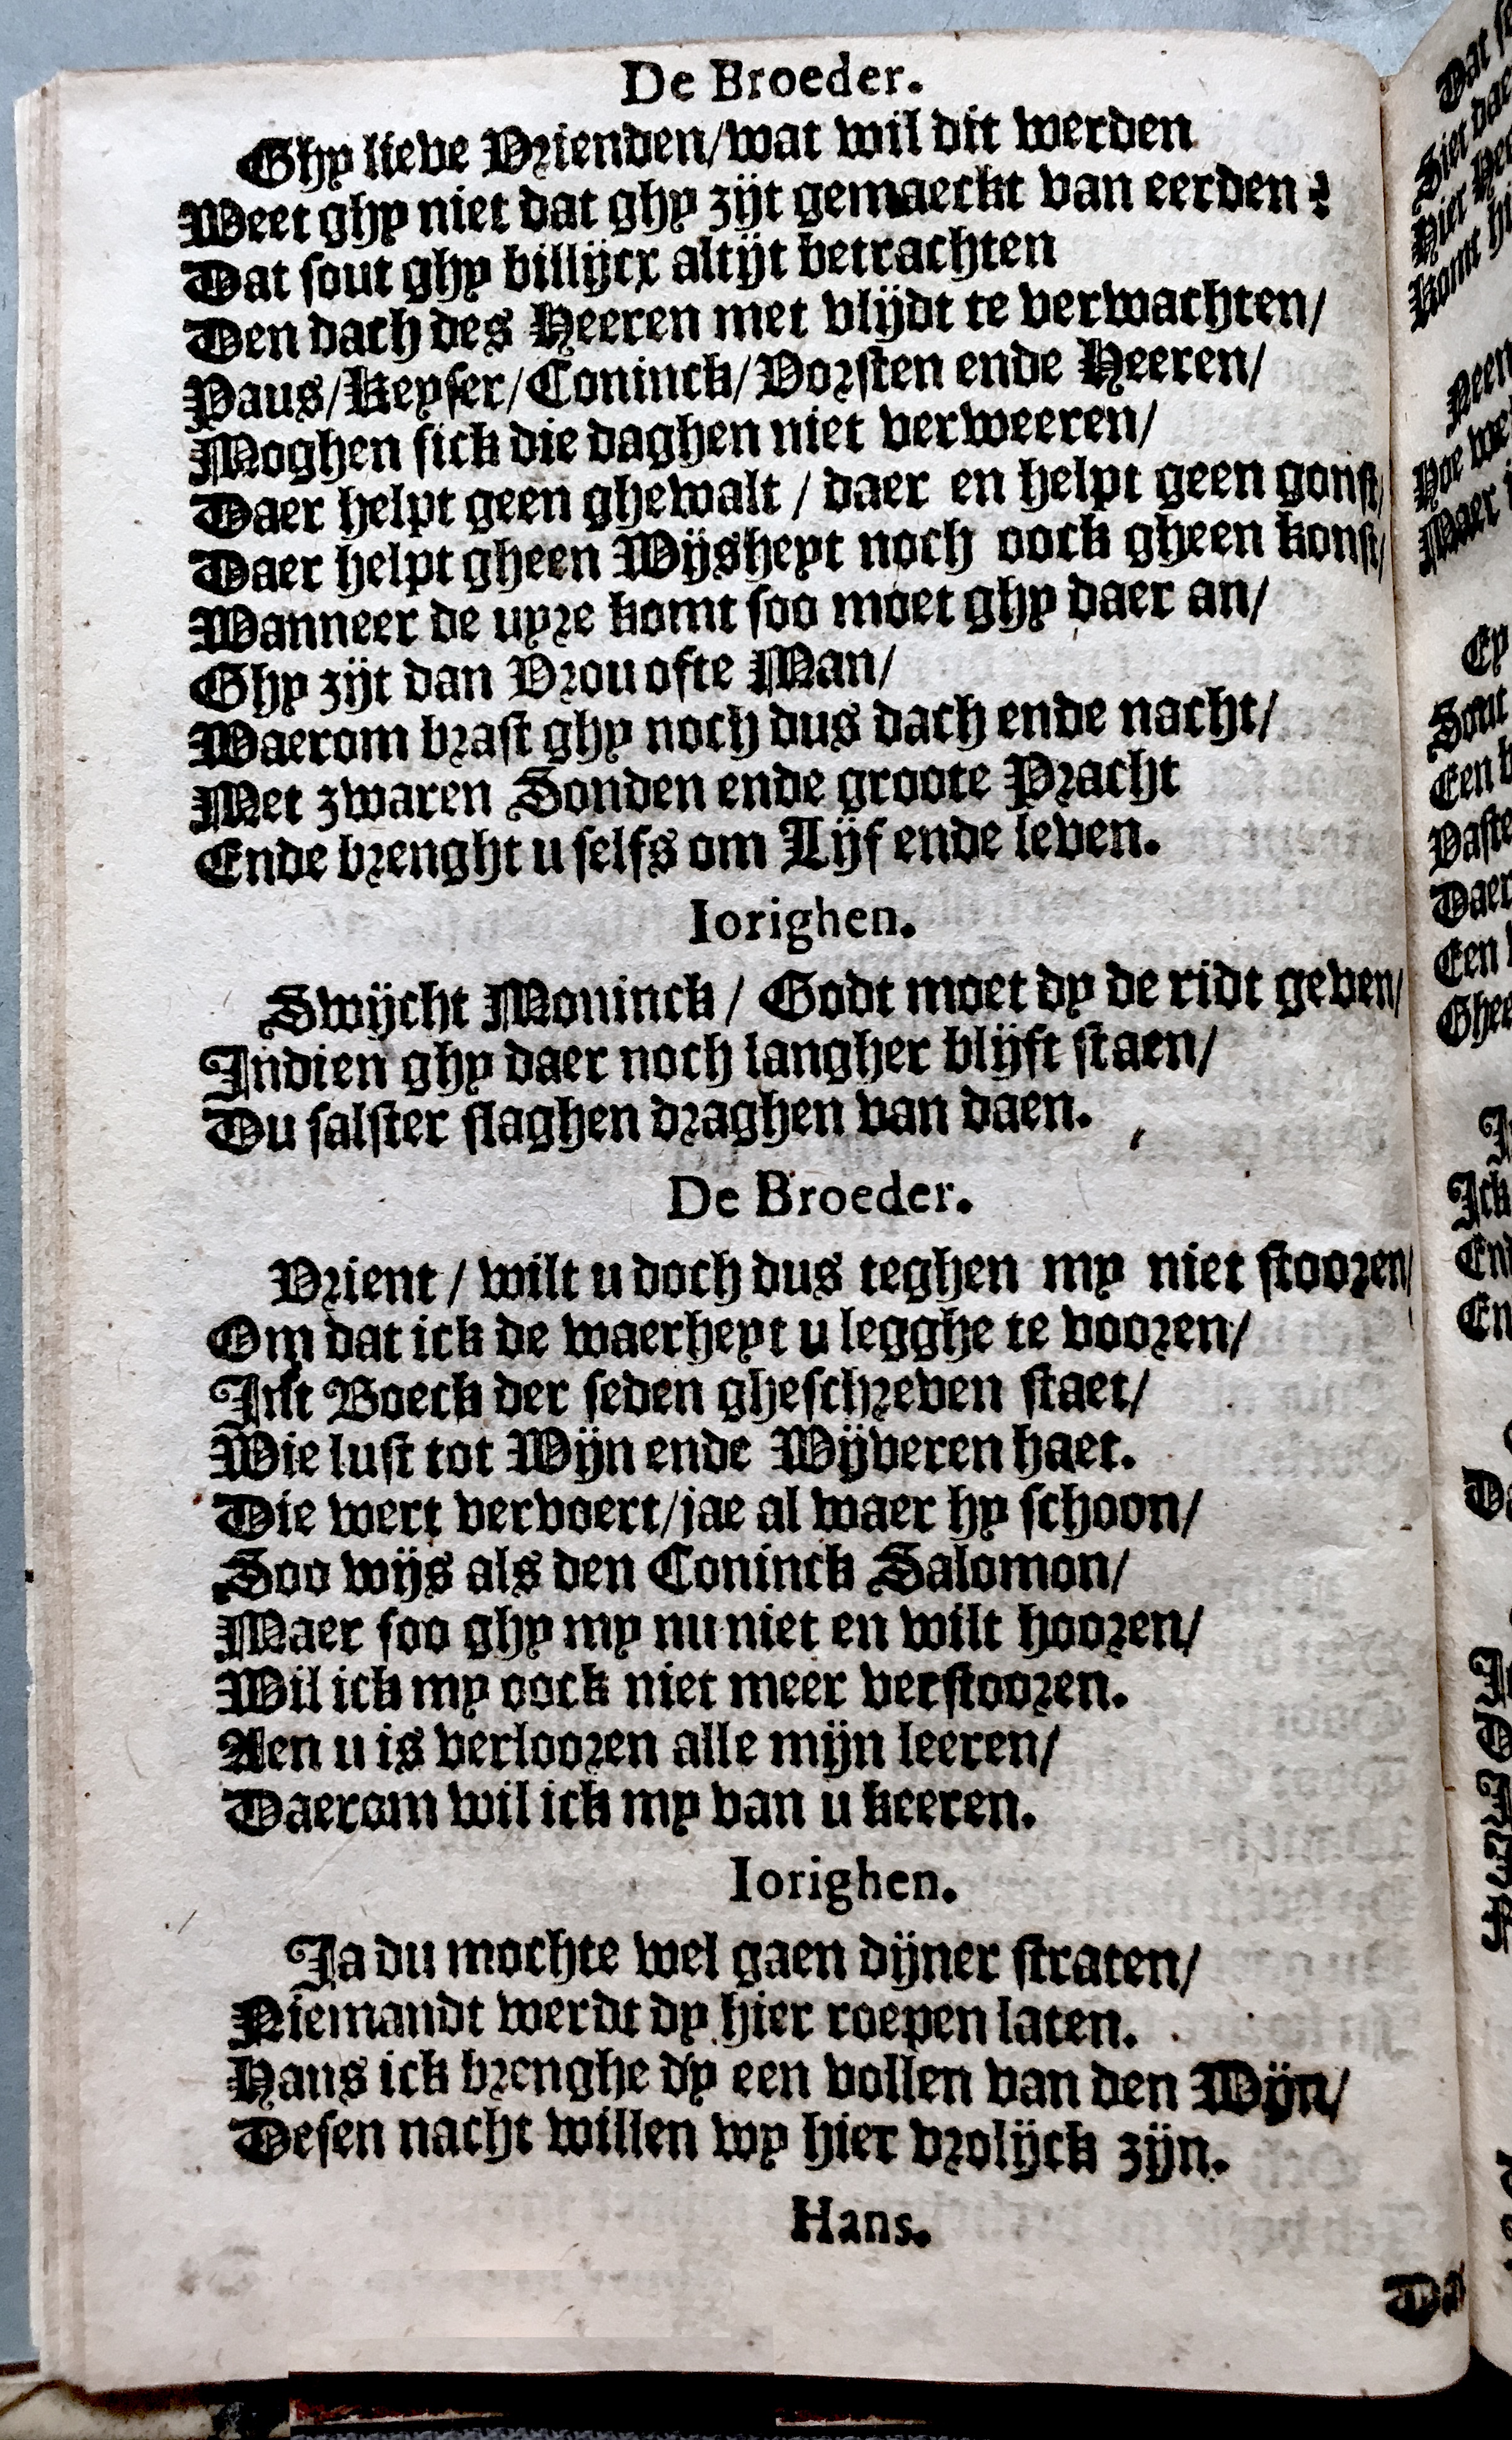 De Broeder.
Ghy lieve Vrienden/wat wil dit werden
Weet ghy niet dat ghy zijt gemaeckt van eerden?
Dat sout ghy billijcx altijt betrachten
Den dach des Heeren met vlijdt te verwachten/
Paus/Keyser/Coninck/Vorsten ende Heeren/
Moghen sick die daghen niet verweeren/
Daer helpt geen ghewalt / daer en helpt geen gonst/
Daer helpt gheen Wijsheyt noch oock gheen konst/
Wanneer de uyre komt soo moet ghy daer an/
Ghy zijt dan Vrou ofte Man/
Waerom brast ghy noch dus dach ende nacht/
Met zwaren Sonden ende groote Pracht
Ende brenght u selfs om Lijf ende leven.
Iorighen.
Swijcht Moninck / Godt moet dy de ridt geven/
Indien ghy daer noch langher blijft staen/
Du salster slaghen draghen van daen.
De Broeder.
Vrient / wilt u doch dus teghen my niet stooren/
Om dat ick de waerheyt u legghe te vooren/
Int Boeck der seden gheschreven staet/
Wie lust tot Wijn ende Wijveren haet.
Die wert vervoert/jae al waer hy schoon/
Soo wijs als den Coninck Salomon/
Maer soo ghy my nu niet en wilt hooren/
Wil ick my oock niet meer verstooren.
Aen u is verlooren alle mijn leeren/
Daerom wil ick my van u keeren.
Iorighen.
Ja du mochte wel gaen dijner straten/
Niemandt werdt dy hier roepen laten.
Hans ick brenghe dy een vollen van den Wijn/
Desen nacht willen wy hier vrolijck zijn.
Hans.
Dat
Siet
Hier
Komt
Neen
Hoe
Maer
Ey
Een
Daer
Een
Ick